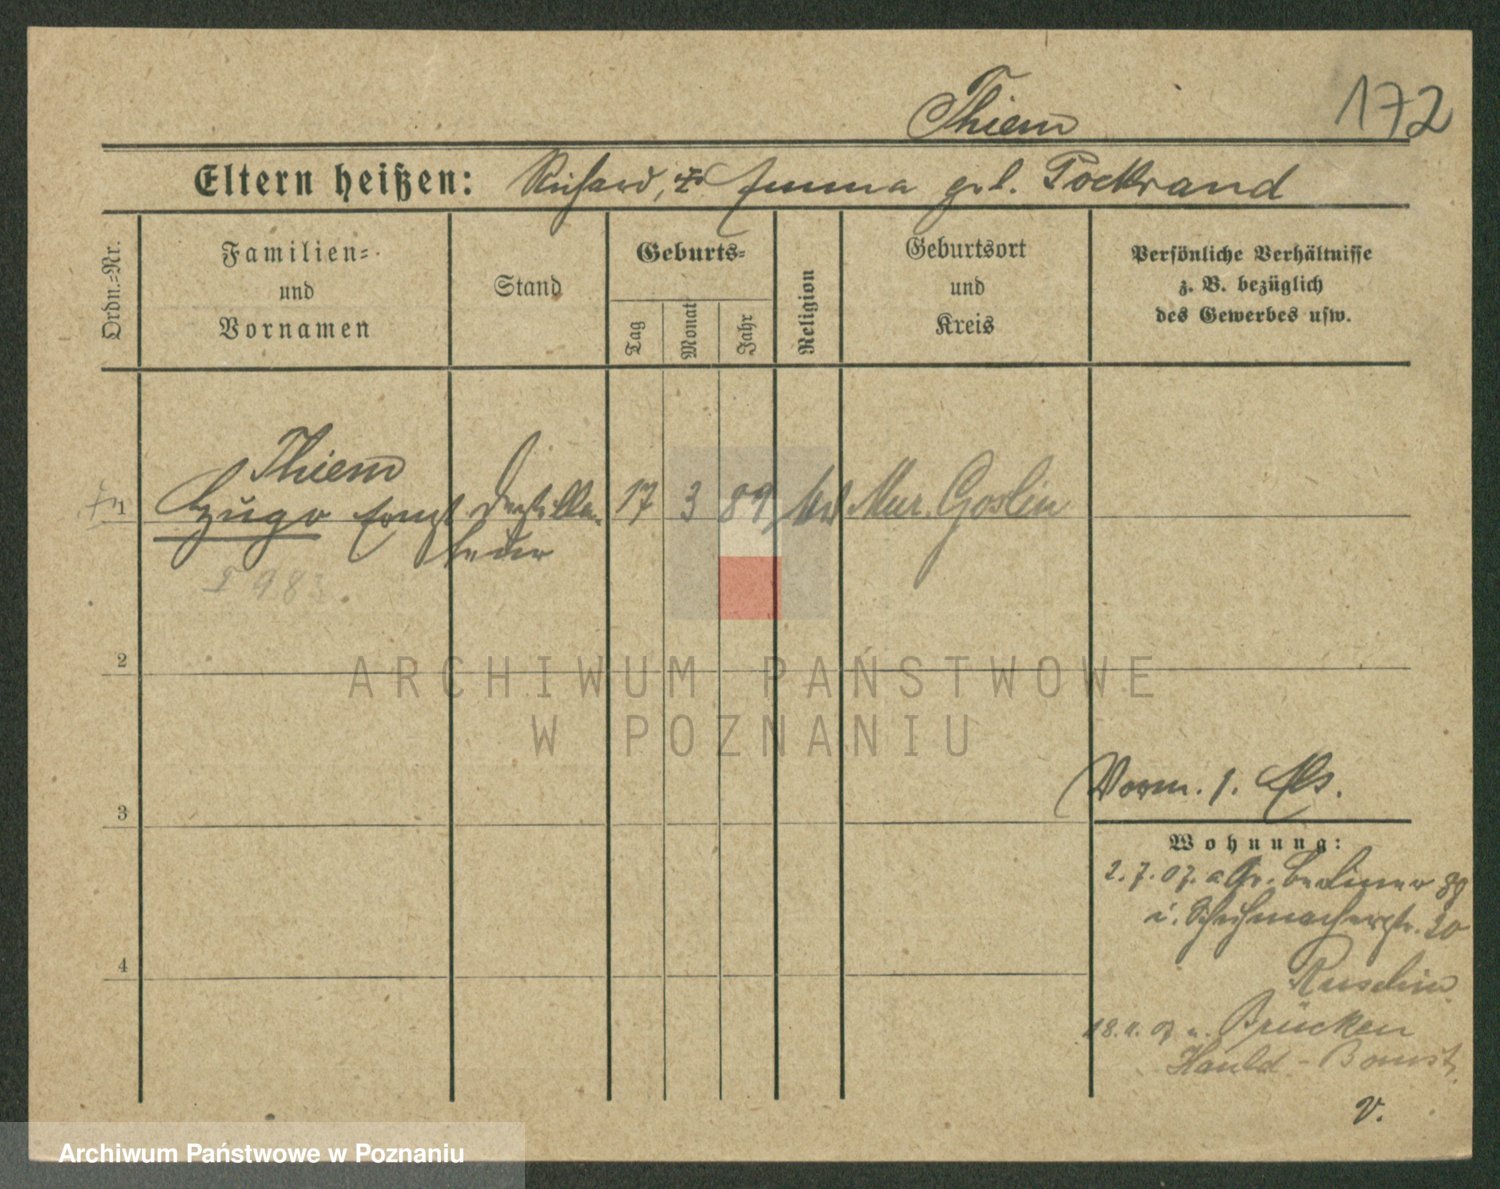 172
Thiem
Eltern heißen: Richard, u. Emma geb. Pockrand
Ordn.-Nr.
Familien-
und
Vornamen
Stand
Geburts-
Tag
Monat
Jahr
Religion
Geburtsort
und
Kreis
Persönliche Verhältnisse
z. B. bezüglich
des Gewerbes usw.
Thiem
1 Hugo Ernst Destilla- 17 3 89 Mur. Goslin
teur
2
ARCHIWUM PAŃSTWOWE
W POZNANIU
Vorm.
3
Wohnung:
2.7.07. a Gr. Berliner 89
i. Schuhmacherstr. 20
4
Brücken
V.
Archiwum Państwowe w Poznaniu